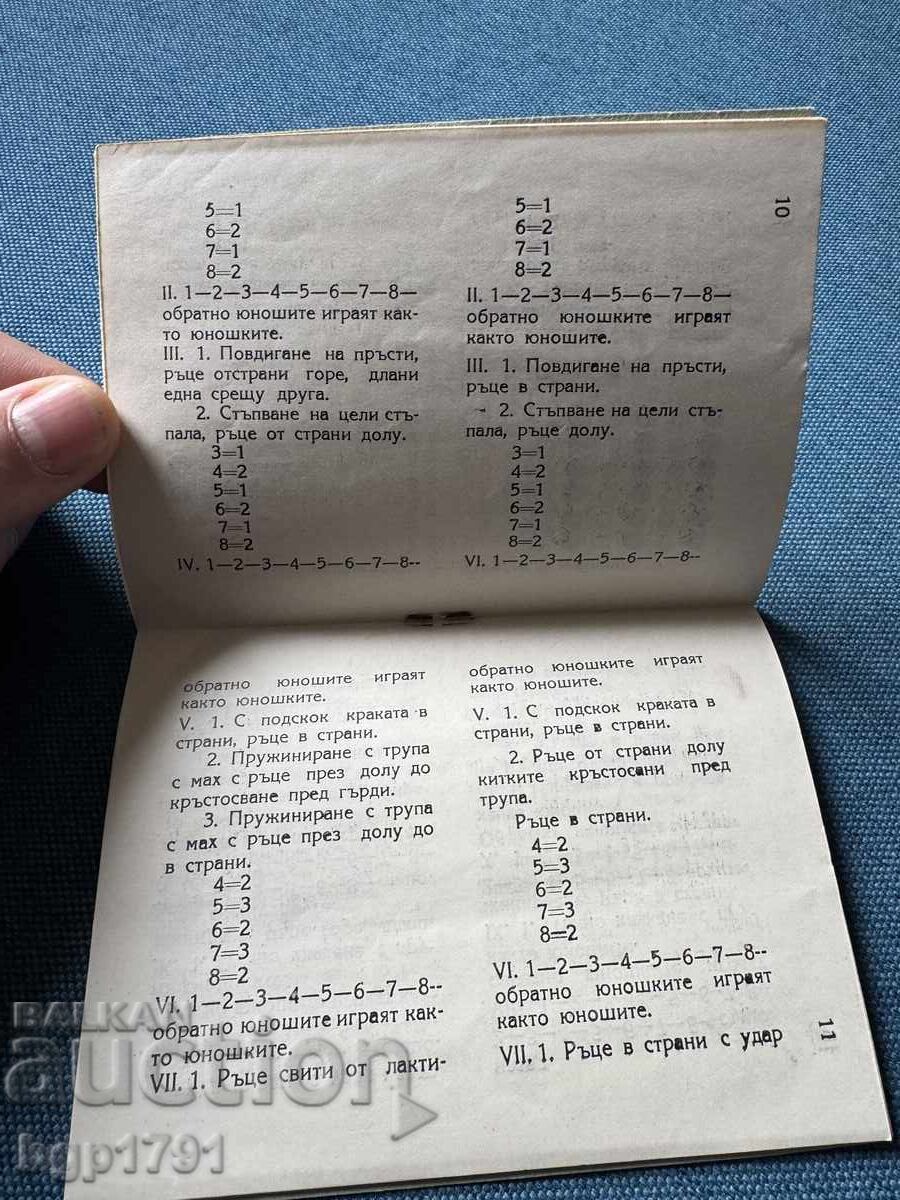 10
5=1
6=2
7=1
8=2
II. 1—2—3—4—5—6—7—8—
обратно юношите играят как-
то юношките.
III. 1. Повдигане на пръсти,
ръце отстрани горе, длани
една срещу друга.
2. Стъпване на цели стъ-
пала, ръце от страни долу.
3=1
4=2
5=1
6=2
7=1
8=2
IV. 1—2—3—4—5—6—7—8--
5=1
6=2
7=1
8=2
II. 1—2—3—4—5—6—7—8—
обратно юношките играят
както юношите.
III. 1. Повдигане на пръсти,
ръце в страни.
2. Стъпване на цели стъ-
пала, ръце долу.
3=1
4=2
5=1
6=2
7=1
8=2
VI. 1—2—3—4—5—6—7—8--
обратно юношите играят
както юношките.
V. 1. С подскок краката в
страни, ръце в страни.
2. Пружиниране с трупа
с мах с ръце през долу до
кръстосване пред гърди.
3. Пружиниране с трупа
с мах с ръце през долу до
в страни.
4=2
5=3
6=2
7=3
8=2
VI. 1—2—3—4—5—6—7—8--
обратно юношите играят как-
то юношките.
VII. 1. Ръце свити от лакти-
обратно юношките играят
както юношите.
V. 1. С подскок краката в
страни, ръце в страни.
2. Ръце от страни долу
китките кръстосани пред
трупа.
Ръце в страни.
4=2
5=3
6=2
7=3
8=2
VI. 1—2—3—4—5—6—7—8--
обратно юношките играят
както юношите.
VII. 1. Ръце в страни с удар
11
BALKAN
auction
bgp1791